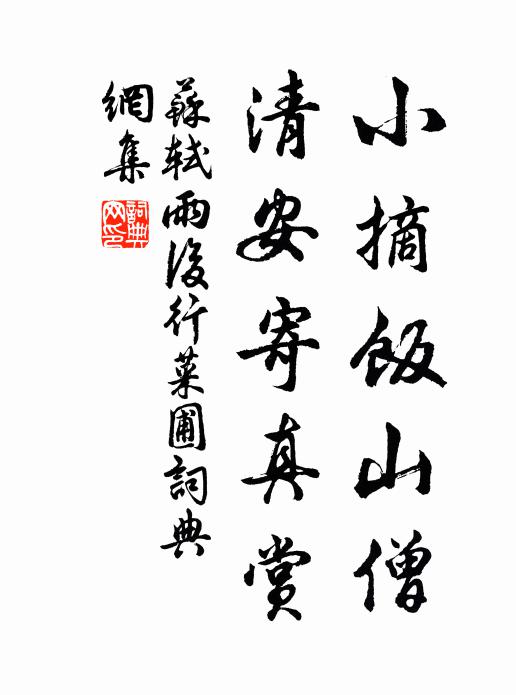 小摘飯山僧
清安寄真賞
蘇軾雨後行菜圃詞典
網集
詞典網印